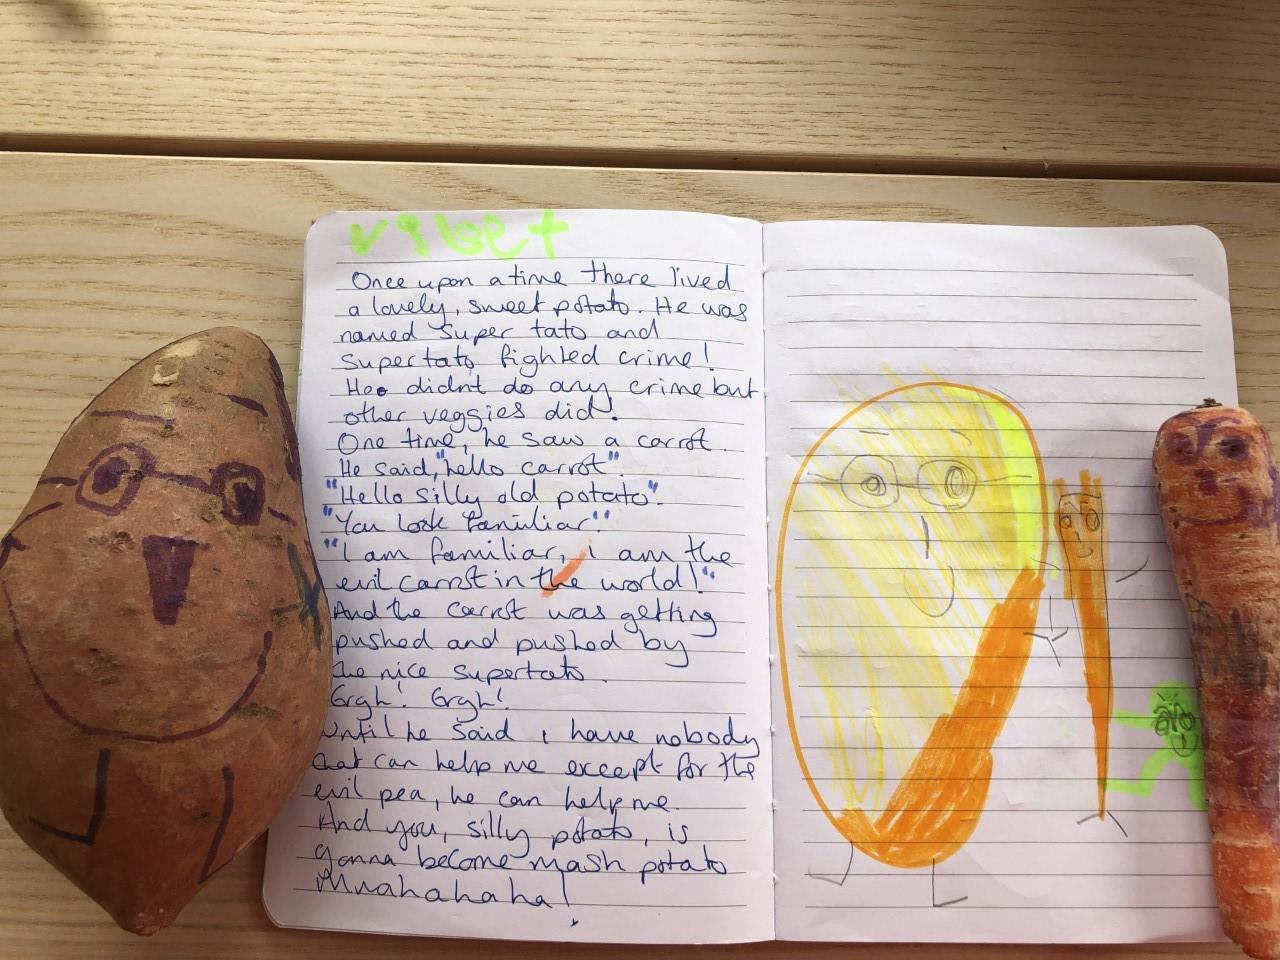 Once upon a time there lived
a lovely, sweet potato. He was
named Super tato and
supertato fighted crime!
He didnt do any crime but
other veggies did!
One time, he saw a carrot.
He said,"hello carrot".
"Hello silly old potato".
"You look familiar"
"I am familiar, i am the
evil carrot in the world!"
And the carrot was getting
pushed and pushed by
the nice supertato.
Grgh! Grgh!
Until he said i have nobody
that can help me except for the
evil pea, he can help me.
And you, silly potato, is
gonna become mash potato
Mnahahaha!